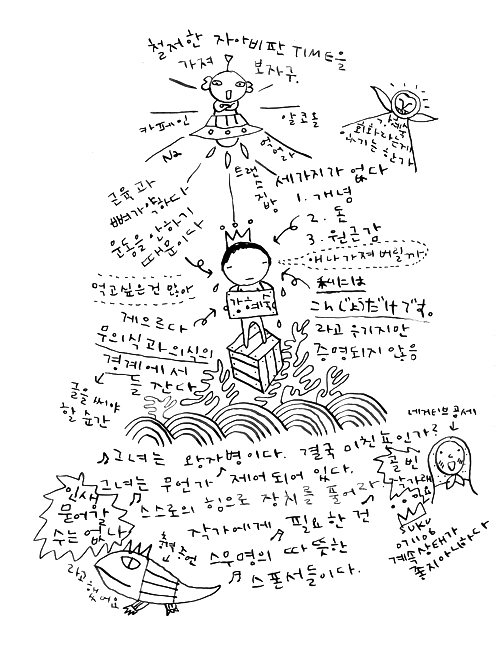 철저한 자아비판 TIME을
가져 보자구.
카페인
Na
알코올
억어라
트랜스지방
세가지가 없다
1. 개념
2. 돈
3. 원근감
애나 가져 버릴까
근육과
뼈가 약하다
운동을 안하기
때문이다
먹고싶은건 많아
게으르다
무의식과 의식의
경계에서
들 잔다
글을 써야
할 순간
강혜숙
こんじょうだけです。
라고 우기지만
증명되지 않음
♪그녀는 왕자병이다. 결국 미친 뇬인가?
그녀는 무언가 제어되어 있다.
스스로의 힘으로 장치를 풀어라
작가에게 필요한 건
스우명의 따뜻한
스폰서들이다.
네거티브 공세
골빈
인생
묻어갈
수는 없나
라고
했어요
SUKU
071106
계속 상태가
좋지 아니하다